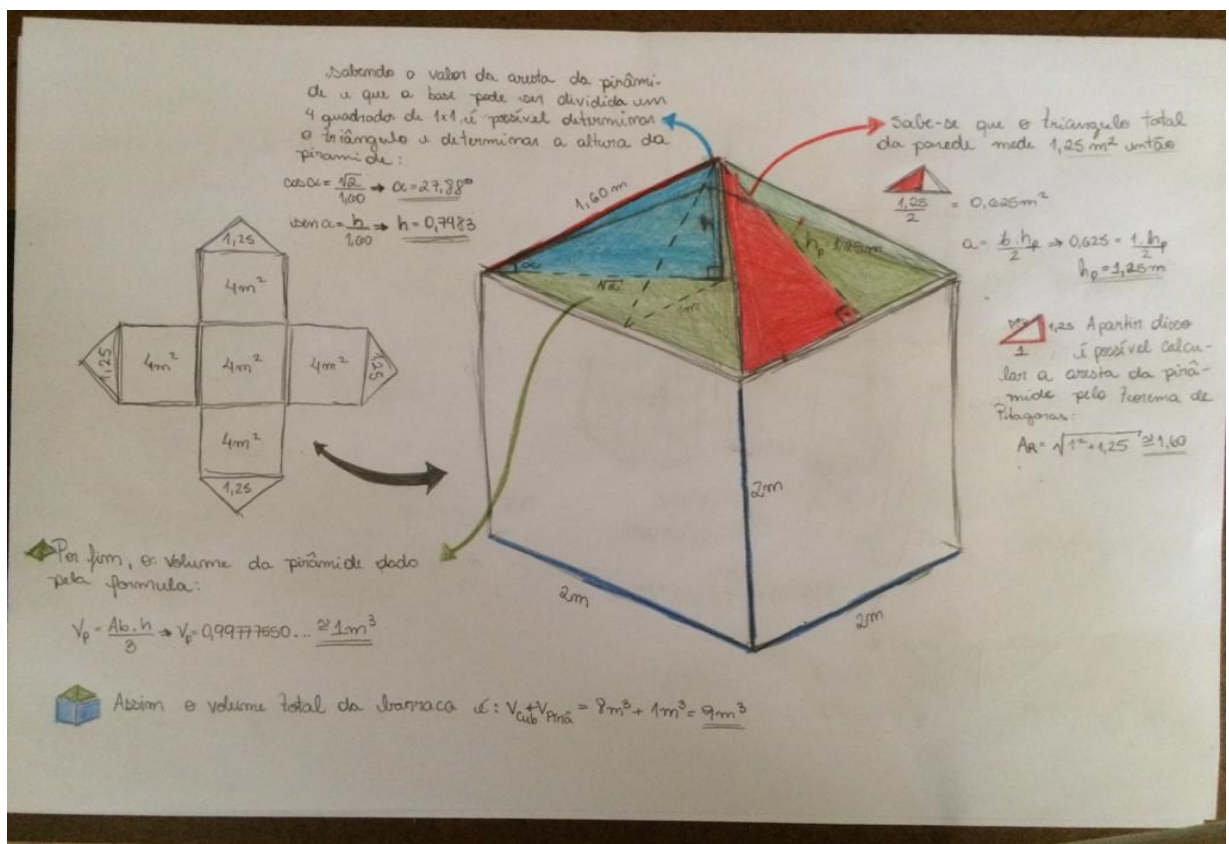 Sabendo o valor da aresta da pirâmi-
de e que a base pode ser dividida em
4 quadrados de 1x1, é possível determinar
o triângulo e determinar a altura da
piramide:
cos α = √2/1,60 → α = 27,88°
sen α = h/1,60 → h = 0,7483
1,60m
α
√2
h
1m
hp 1,25m
Sabe-se que o triangulo total
da parede mede 1,25 m² então
1,25/2 = 0,625m²
a = b.hp/2 → 0,625 = 1.hp/2
hp = 1,25m
1,25 A partir disso
1
é possível calcu-
lar a aresta da pirâ-
mide pelo Teorema de
Pitagoras:
AR = √1²+1,25 ≅ 1,60
1,25
4m²
1,25
4m²
4m²
4m²
1,25
4m²
1,25
2m
2m
2m
Por fim, o volume da pirâmide dado
pela formula:
Vp = Ab.h/3 → Vp = 0,99777550... ≅ 1m³
Assim o volume total da barraca é: VCub+VPirâ = 8m³ + 1m³ = 9m³